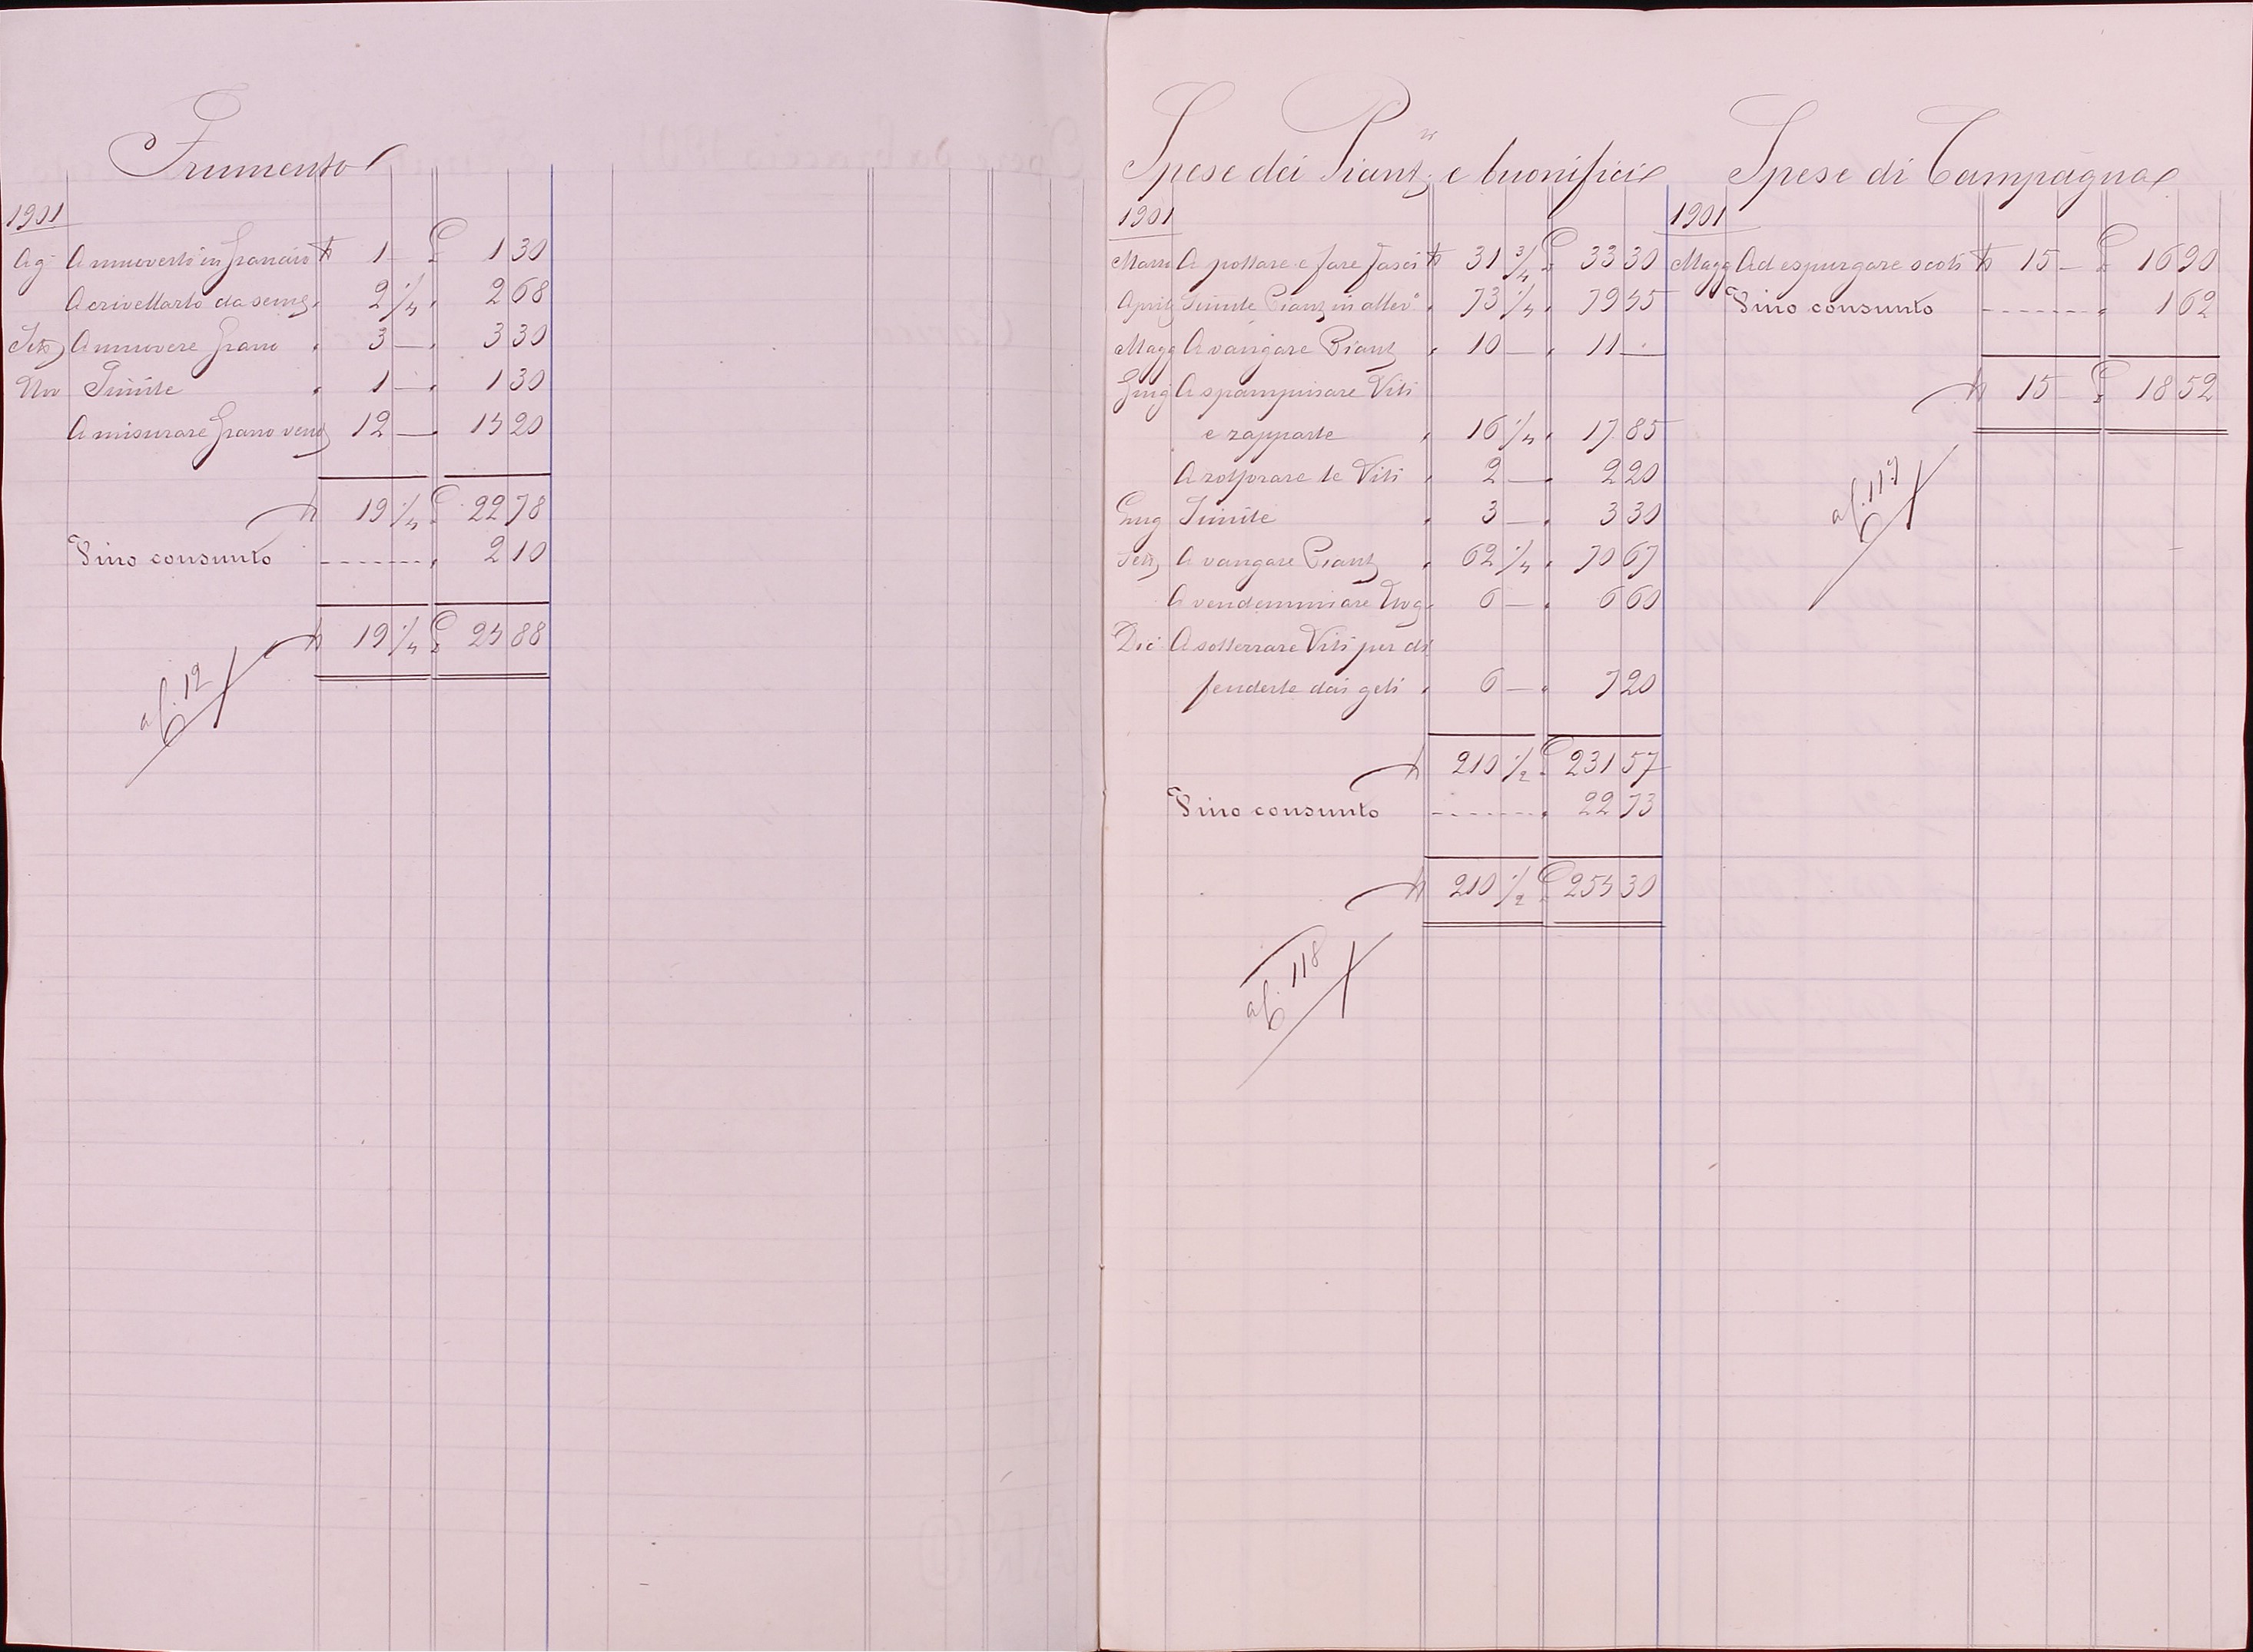 Frumento
1901
Ag. A muoverlo in Granaio N 1 — £ 1 30
A crivellarlo da seme " 2 1/4 " 2 68
Sett A muovere Grano " 3 — " 3 30
Nov Simile " 1 — " 1 30
A misurare Grano vend " 12 — " 14 20
N 19 1/4 £ 22 78
Vino consunto " 2 10
N 19 1/4 £ 24 88
a f. 12
Spese dei Piantⁿⁱ e buonifici
1901
Marzo A potare e fare fasci N 31 3/4 £ 33 30
April Simile Piant in allevᵒ " 73 1/4 " 79 45
Magg A vangare Piant " 10 — " 11 —
Giug A spampinare Viti
e zapparle " 16 1/4 " 17 85
A zolforare le Viti " 2 — " 2 20
Lug Simile " 3 — " 3 30
Sett A vangare Piant " 62 1/4 " 70 67
A vendemmiare Uvg " 6 — " 6 60
Dic A sotterrare Viti per di
fenderle dai geli " 6 — " 7 20
N 210 1/2 £ 231 57
Vino consunto " 22 73
N 210 1/2 £ 254 30
a f. 118
Spese di Campagna
1901
Magg Ad espurgare scoli N 15 — £ 16 90
Vino consunto " 1 62
N 15 — £ 18 52
a f. 119